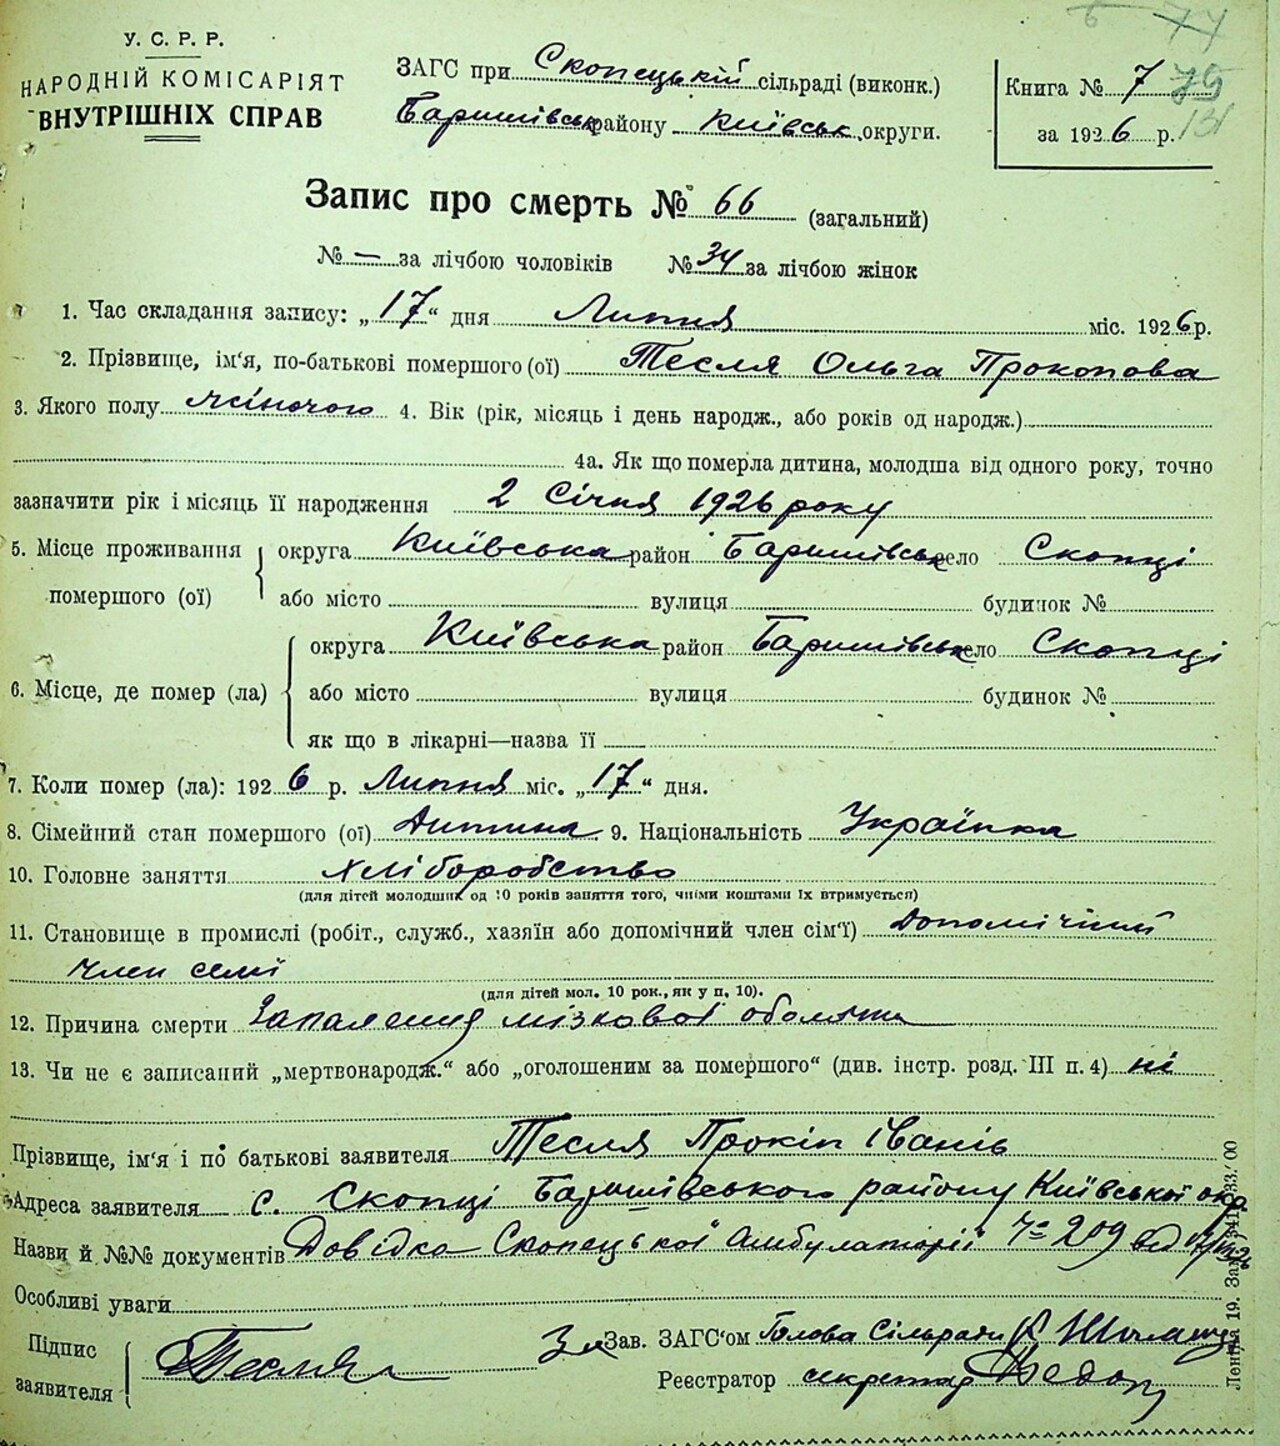 У. С. Р. Р.
НАРОДНІЙ КОМІСАРІЯТ
ВНУТРІШНІХ СПРАВ
ЗАГС при Скопецькій сільраді (виконк.)
Баришівськ району Київськ округи.
Книга № 7
за 1926 р.
77
79
131
Запис про смерть № 66 (загальний)
№ — за лічбою чоловіків № 34 за лічбою жінок
1. Час складання запису: „17“ дня Липня міс. 1926 р.
2. Прізвище, ім‘я, по-батькові помершого (ої) Тесля Ольга Прокопова
3. Якого полу жіночого 4. Вік (рік, місяць і день народж., або років од народж.)
4а. Як що померла дитина, молодша від одного року, точно
зазначити рік і місяць її народження 2 Січня 1926 року
5. Місце проживання помершого (ої) округа Київська район Баришівськ село Скопці
або місто вулиця будинок №
6. Місце, де помер (ла) округа Київська район Баришівськ село Скопці
або місто вулиця будинок №
як що в лікарні—назва її
7. Коли помер (ла): 1926 р. Липня міс. „17“ дня.
8. Сімейний стан помершого (ої) Дитина 9. Національність Українка
10. Головне заняття хліборобство
(для дітей молодших од 10 років заняття того, чиїми коштами їх втримується)
11. Становище в промислі (робіт., служб., хазяїн або допомічний член сім‘ї) Допомічний
член семї
(для дітей мол. 10 рок., як у п. 10).
12. Причина смерти Запалення мізкової оболочки
13. Чи не є записаний „мертвонародж.“ або „оголошеним за помершого“ (див. інстр. розд. III п. 4) ні
Прізвище, ім‘я і по батькові заявителя Тесля Прокіп Іванів
Адреса заявителя с. Скопці Баришівського району Київської окр.
Назви й №№ документів Довідка Скопецької Амбулаторії № 209 від
Особливі уваги
Підпис заявителя Тесля
За Зав. ЗАГС‘ом Голова Сільради
Реєстратор секретар